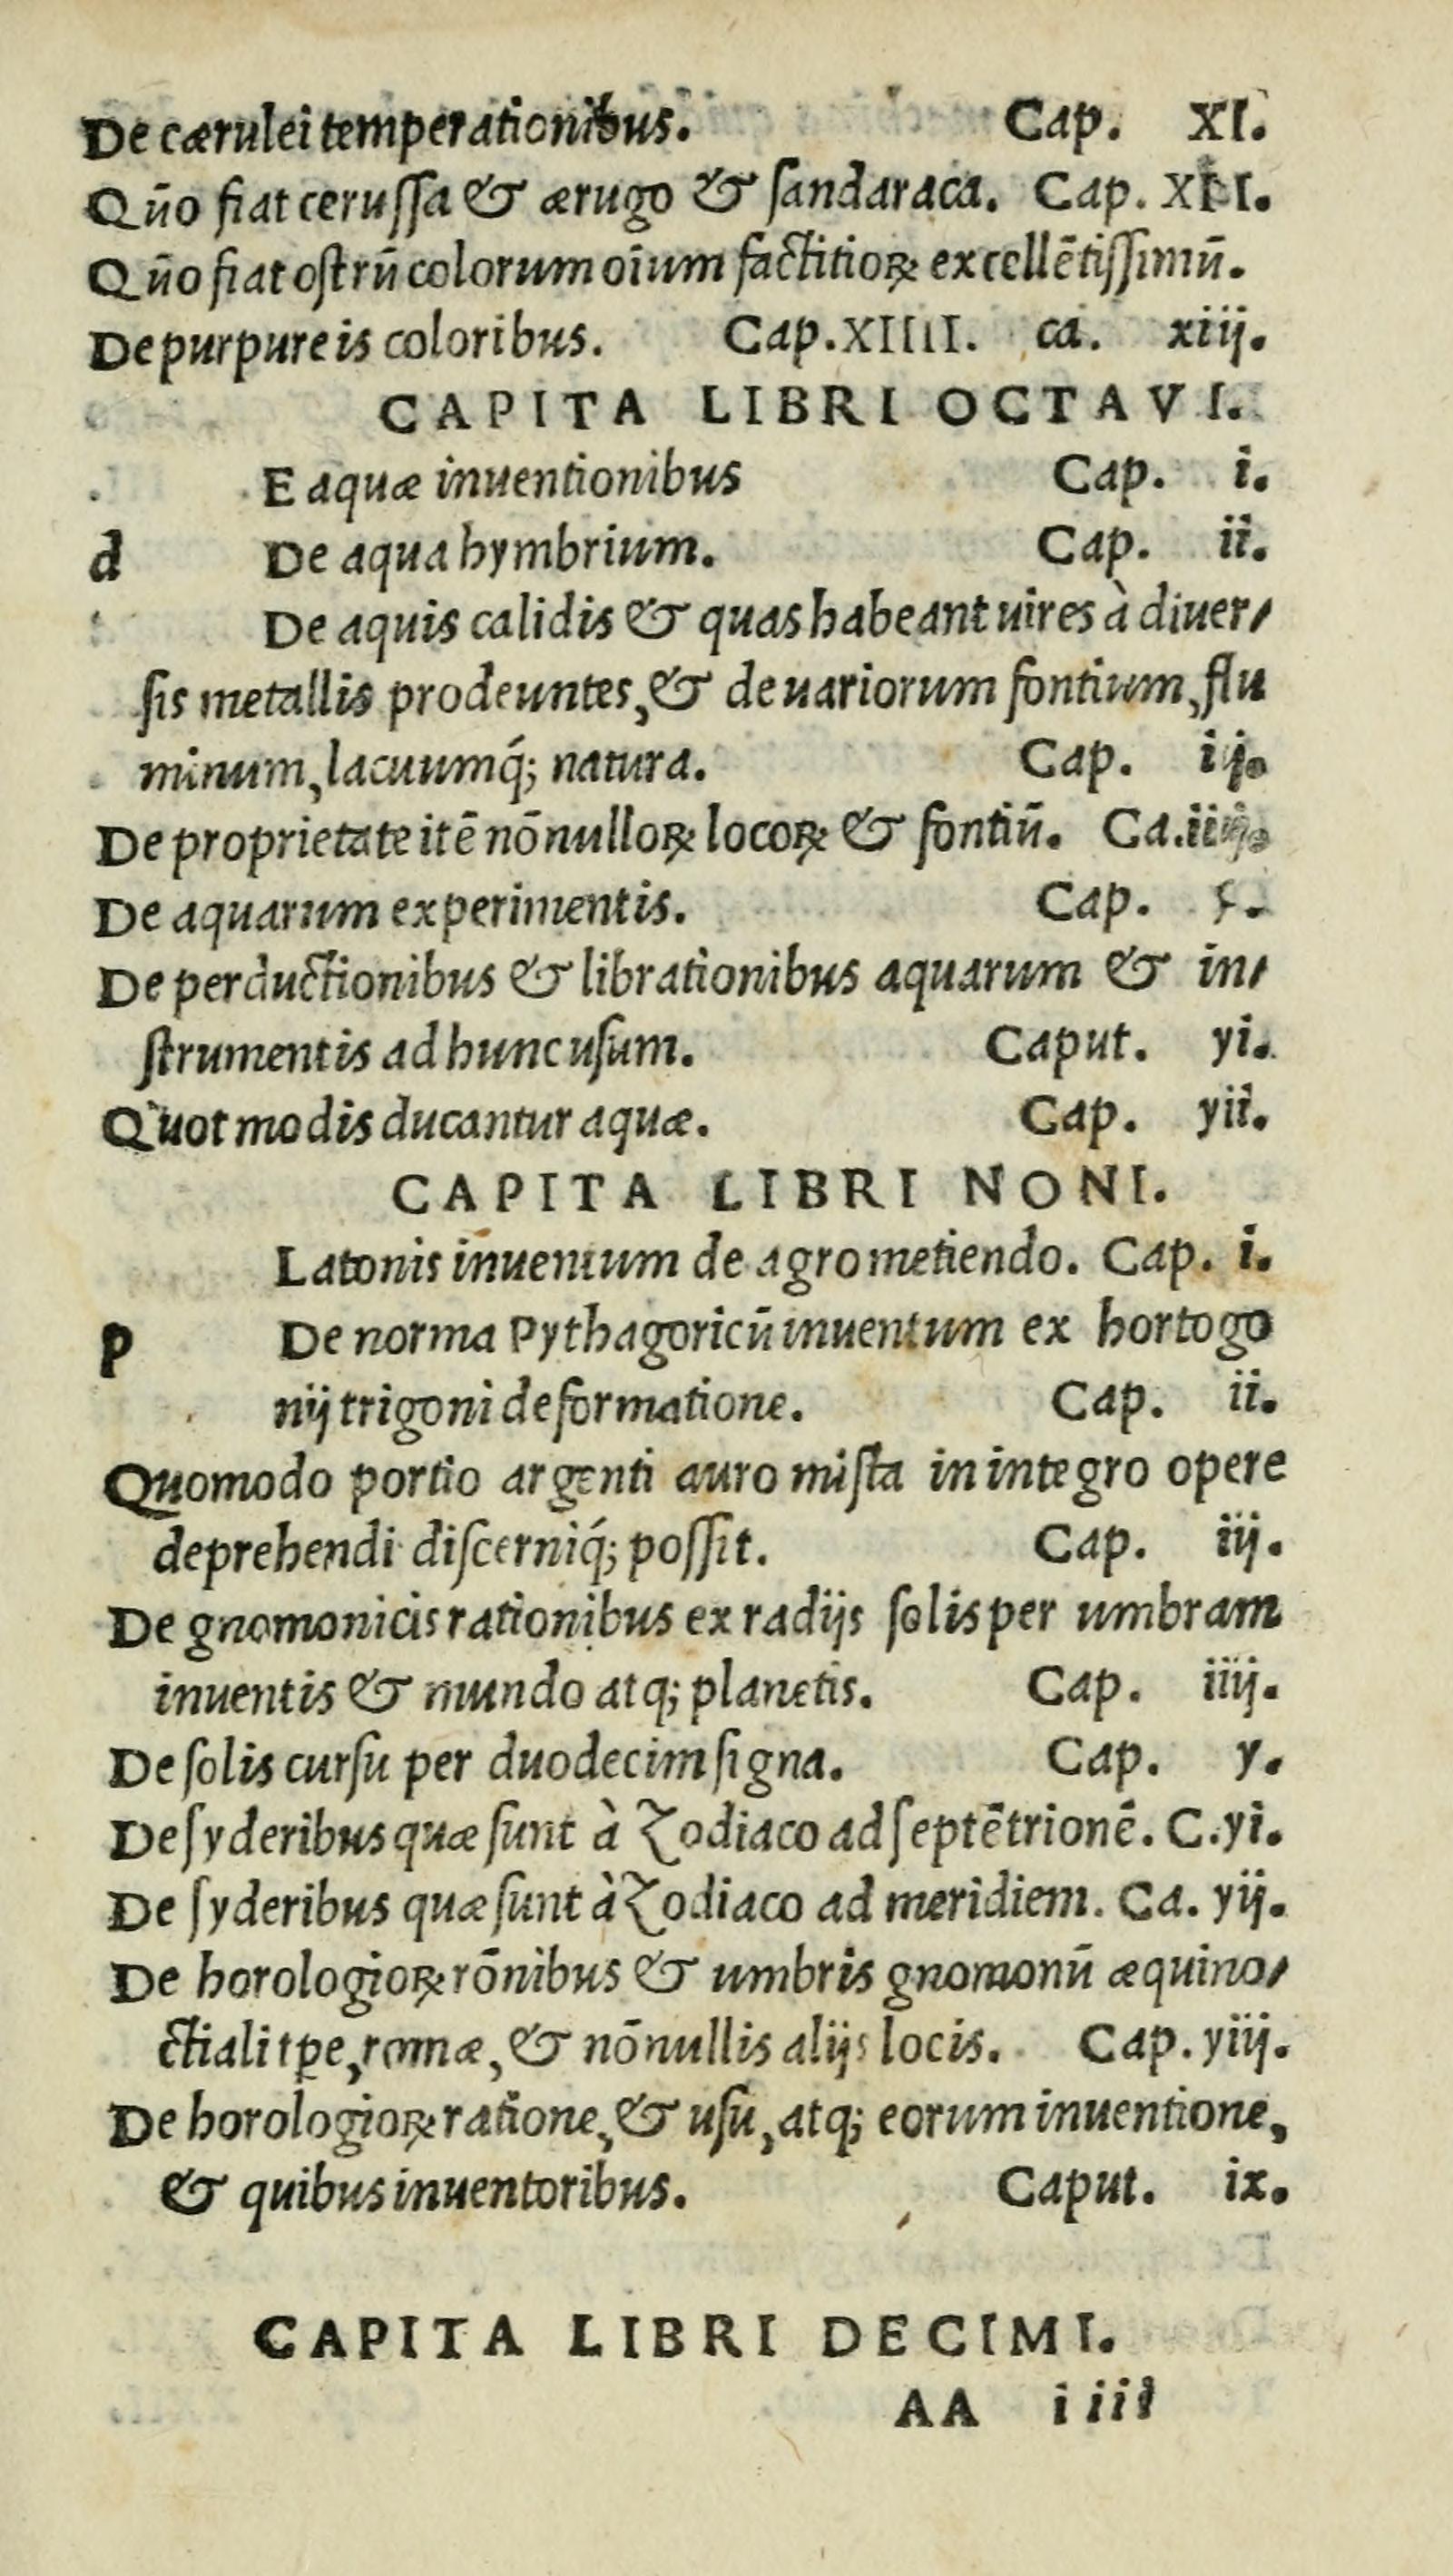 De cærulei temperationibus. Cap. XI.
Qūo fiat cerussa & ærugo & sandaraca. Cap. XII.
Qūo fiat ostrū colorum oīum factitioꝝ excellētissimū.
De purpureis coloribus. Cap. XIIII. ca. xiij.
CAPITA LIBRI OCTAVI.
E aquæ inuentionibus Cap. i.
d De aqua hymbrium. Cap. ii.
De aquis calidis & quas habeant uires à diuer/
sis metallis prodeuntes, & de uariorum fontium, flu
minum, lacuumq́; natura. Cap. iij.
De proprietate itē nōnulloꝝ locoꝝ & fontiū. Ca. iiij.
De aquarum experimentis. Cap.
De perductionibus & librationibus aquarum & in/
strumentis ad hunc usum. Caput. yi.
Quot modis ducantur aquæ. Cap. yii.
CAPITA LIBRI NONI.
Latonis inuentum de agro metiendo. Cap. i.
p De norma Pythagoricū inuentum ex hortogo
nij trigoni deformatione. Cap. ii.
Quomodo portio argenti auro mista in integro opere
deprehendi discerniq́; possit. Cap. iij.
De gnomonicis rationibus ex radijs solis per umbram
inuentis & mundo atq; planetis. Cap. iiij.
De solis cursu per duodecim signa. Cap. y.
De syderibus quæ sunt à Zodiaco ad septētrionē. C. yi.
De syderibus quæ sunt à Zodiaco ad meridiem. Ca. yij.
De horologioꝝ rōnibus & umbris gnomonū æquino/
ctiali tꝑe, romæ, & nōnullis alijs locis. Cap. yiij.
De horologioꝝ ratione, & usu, atq; eorum inuentione,
& quibus inuentoribus. Caput. ix.
CAPITA LIBRI DECIMI.
AA iiii